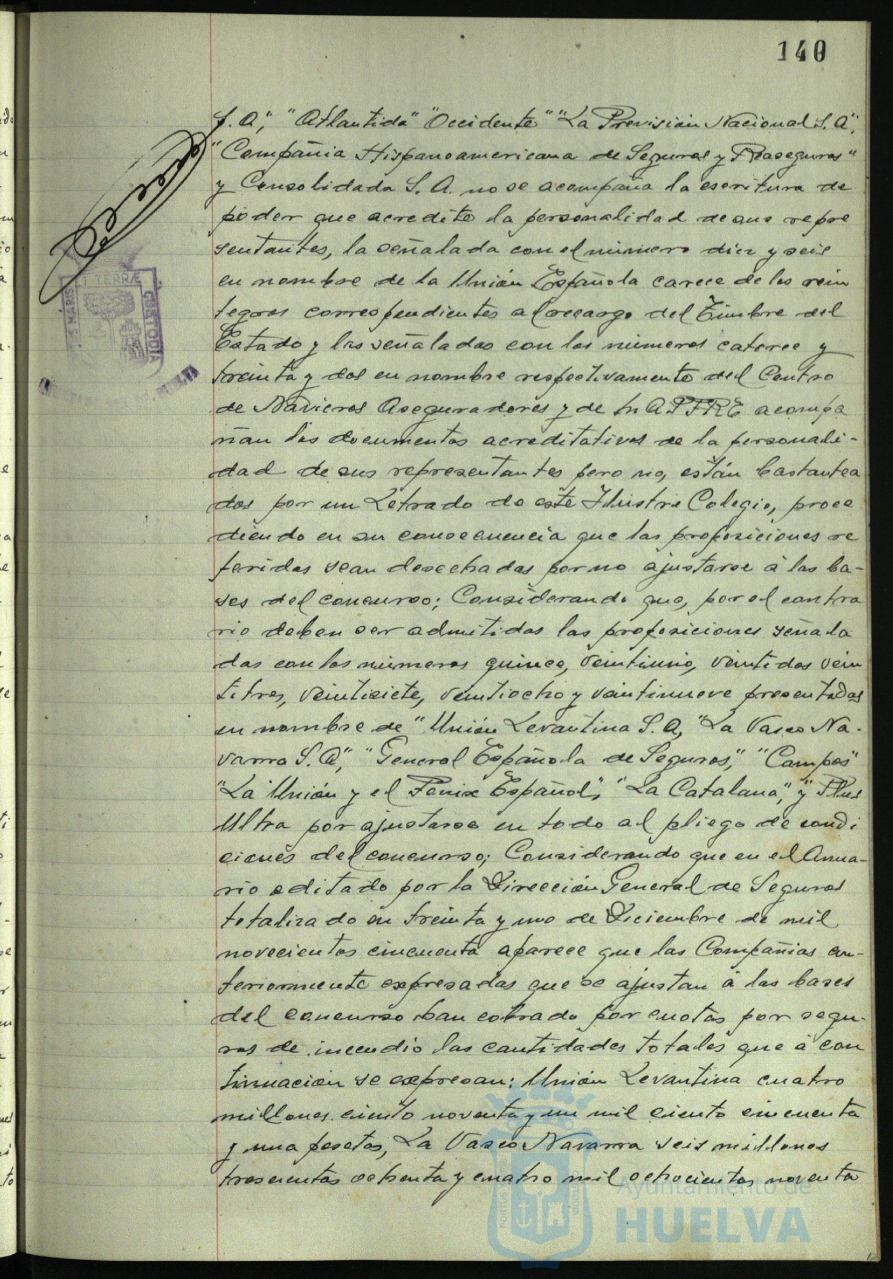 140
S. A", "Atlantida" "Occidente" "La Previsión Nacional S. A",
"Compañia Hispanoamericana de Seguros y Reaseguros"
y Consolidada S. A. no se acompaña la escritura de
poder que acredite la personalidad de sus repre
sentantes, la señalada con el número diez y seis
en nombre de la Unión Española carece de los rein
tegros correspondientes al recargo del Timbre del
Estado y las señaladas con los números catorce y
treinta y dos en nombre respectivamente del Centro
de Navieros Aseguradores y de MAPFRE acompa
ñan los documentos acreditativos de la personali-
dad de sus representantes pero no, están bastantea
dos por un Letrado de este Ilustre Colegio, proce
diendo en su consecuencia que las proposiciones re
feridas sean desechadas por no ajustarse á las ba-
ses del concurso; Considerando que, por el contra
rio deben ser admitidas las proposiciones señala
das con los números quince, veintiuno, veintidos vein
titres, veintisiete, veintiocho y veintinueve presentadas
en nombre de "Unión Levantina S. A, "La Vasco Na-
varra S. A", "General Española de Seguros," "Campos"
"La Unión y el Fenix Español", "La Catalana", y "Plus
Ultra por ajustarse en todo al pliego de condi
ciones del concurso; Considerando que en el Anua-
rio editado por la Dirección General de Seguros
totalizado en treinta y uno de Diciembre de mil
novecientos cincuenta aparece que las Compañias an-
teriormente expresadas que se ajustan á las bases
del concurso han cobrado por cuotas por segu-
ros de incendio las cantidades totales que á con
tinuación se expresan: Unión Levantina cuatro
millones ciento noventa y un mil ciento cincuenta
y una pesetas, La Vasco Navarra seis millones
trescientas ochenta y cuatro mil ochocientas noventa
TERRÆ
CUSTODIA
Ayuntamiento de
HUELVA